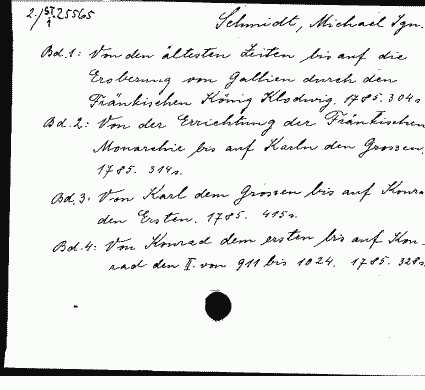 2./ST.25565 Schmidt, Michael Ign.
1
Bd.1: Von den ältesten Zeiten bis auf die
Eroberung von Gallien durch den
Fränkischen König Klodwig. 1785. 304s
Bd.2: Von der Errichtung der Fränkischen
Monarchie bis auf Karln den Grossen.
1785. 314s.
Bd.3: Von Karl dem Grossen bis auf Konra
den Ersten. 1785. 415s.
Bd.4: Von Konrad dem ersten bis auf Kon-
rad den II. von 911 bis 1024. 1785. 328s.